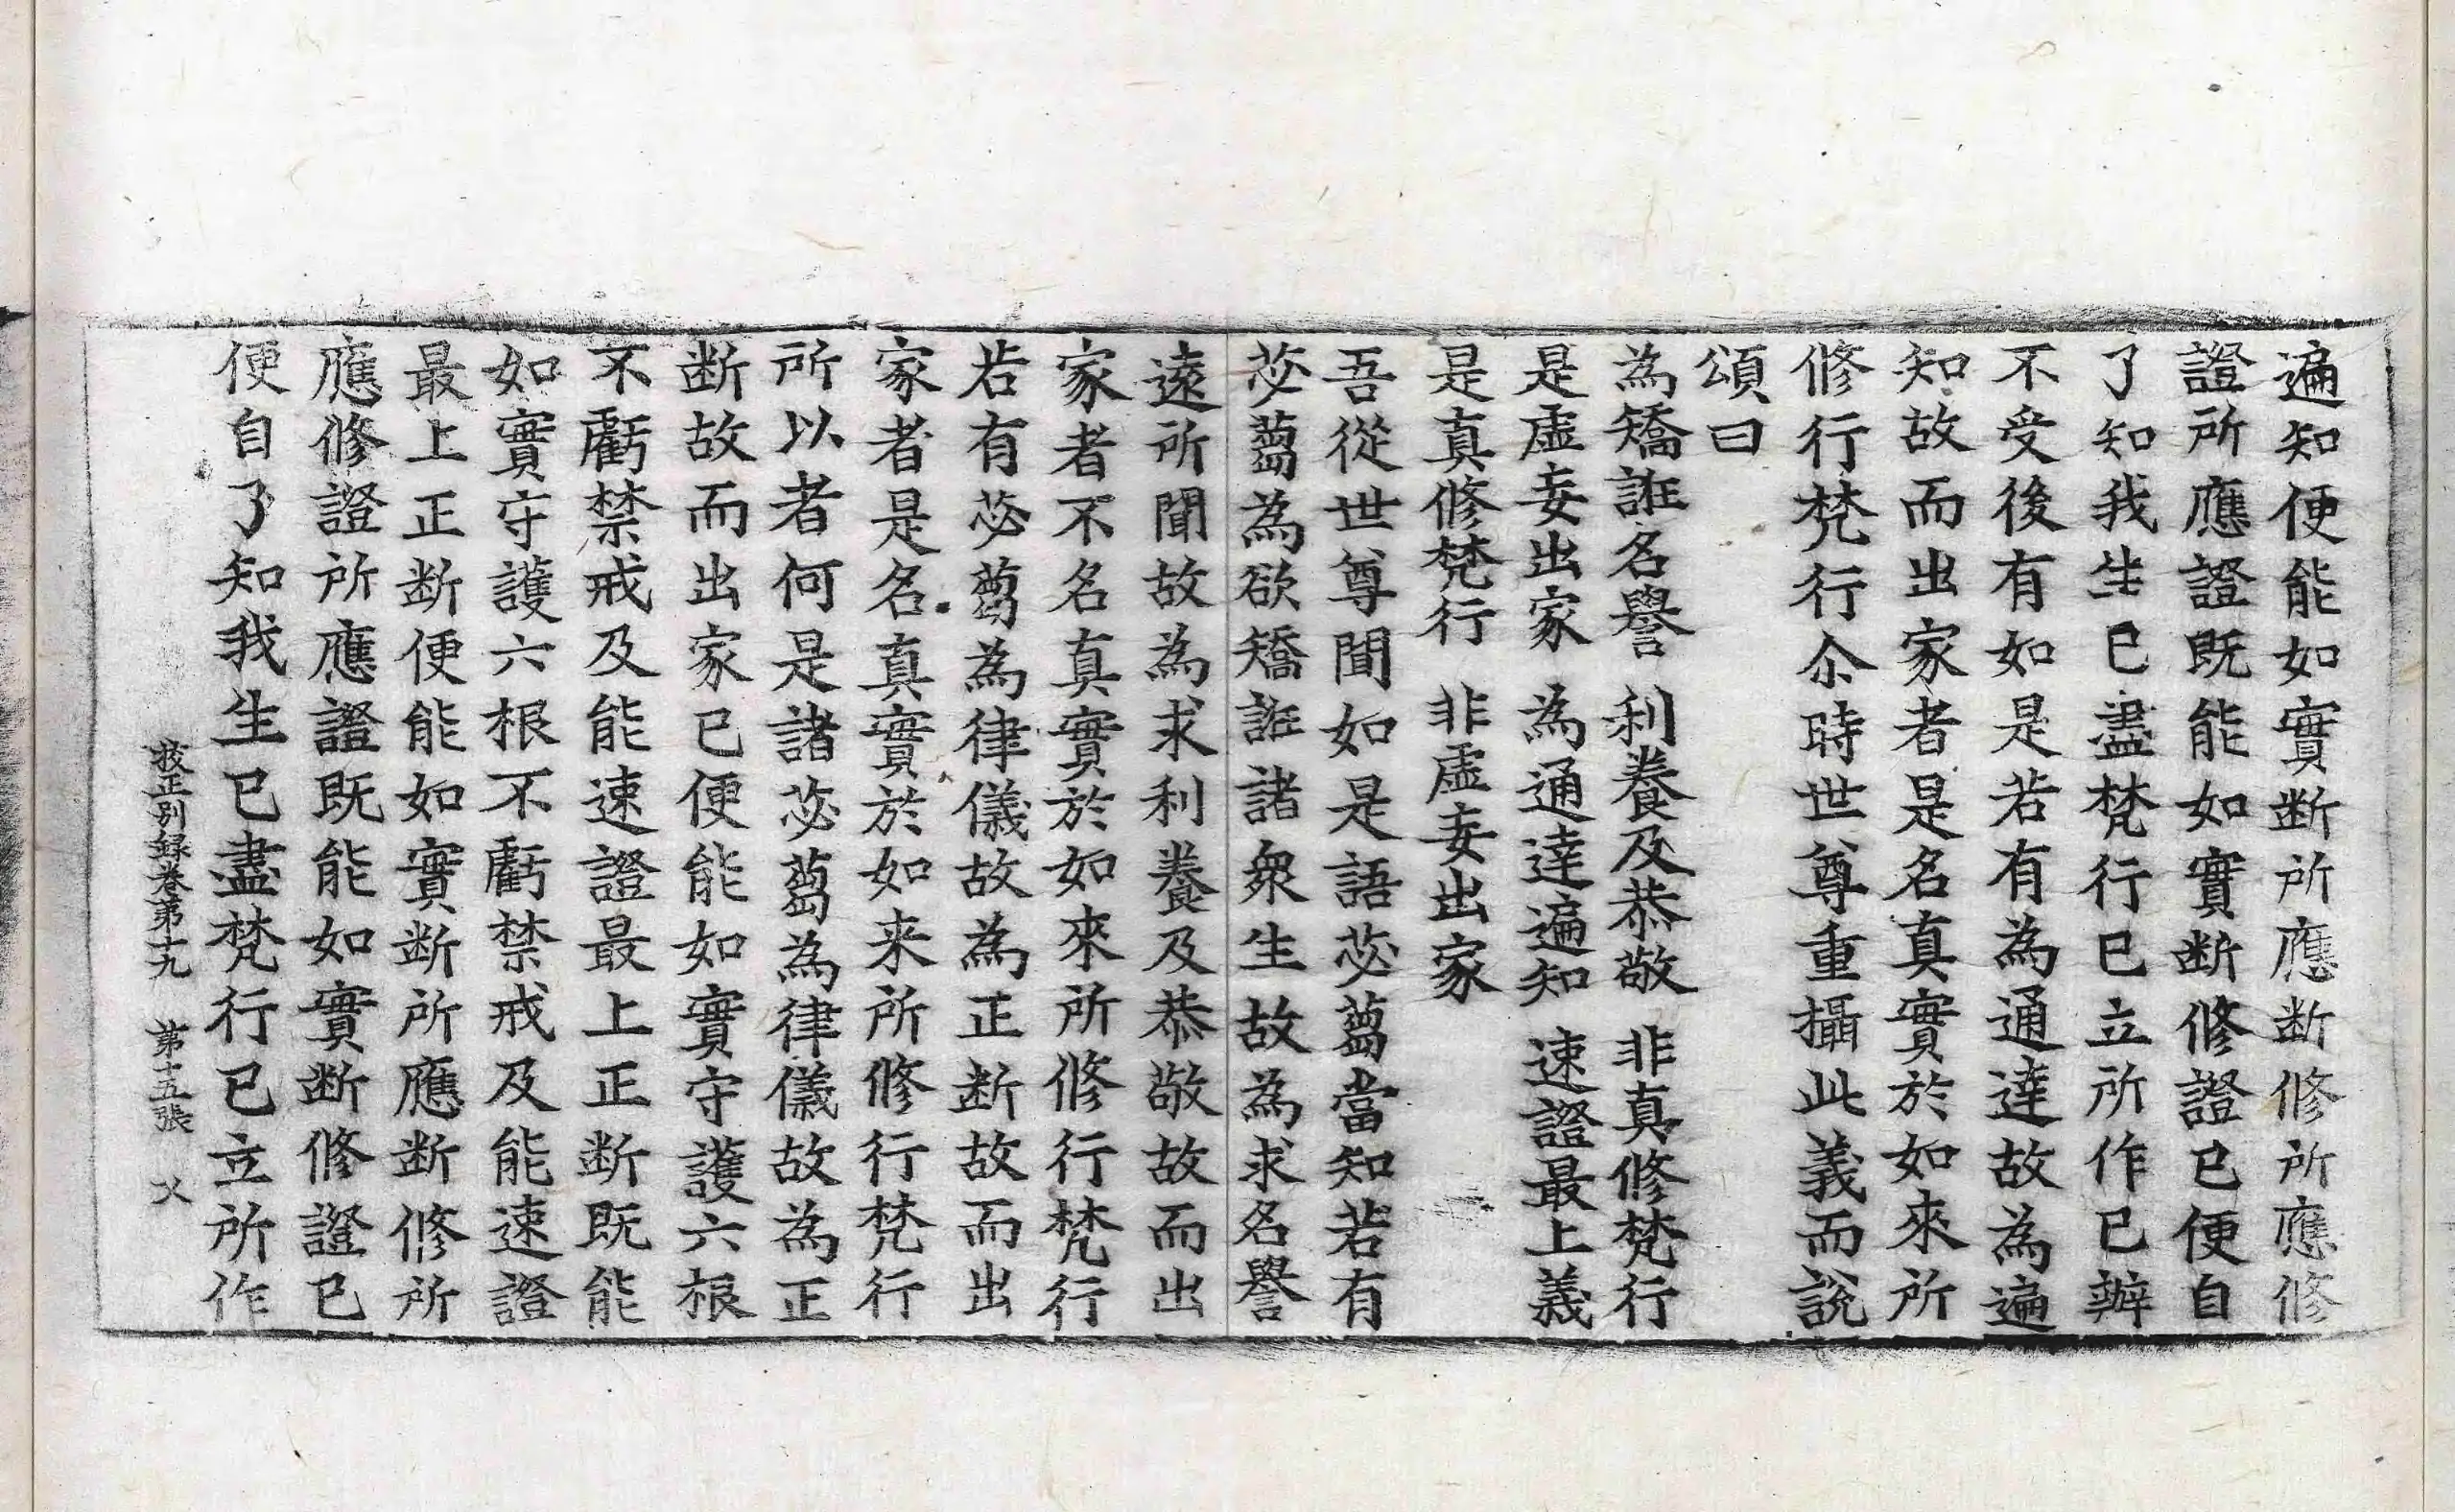 遍知便能如實断所應断修所應修
證所應證既能如實断修證已便自
了知我生已盡梵行已立所作已辦
不受後有如是若有為通達故為遍
知故而出家者是名真實於如來所
修行梵行尒時世尊重攝此義而說
頌曰
為矯誑名譽 利養及恭敬 非真修梵行
是虛妄出家 為通達遍知 速證最上義
是真修梵行 非虛妄出家
吾從世尊聞如是語苾蒭當知若有
苾蒭為欲矯誑諸衆生故為求名譽
遠所聞故為求利養及恭敬故而出
家者不名真實於如來所修行梵行
若有苾蒭為律儀故為正断故而出
家者是名真實於如来所修行梵行
所以者何是諸苾蒭為律儀故為正
断故而出家已便能如實守護六根
不虧禁戒及能速證最上正断既能
如實守護六根不虧禁戒及能速證
最上正断便能如實断所應断修所
應修證所應證既能如實断修證已
便自了知我生已盡梵行已立所作
校正別録卷第十九 第十五張